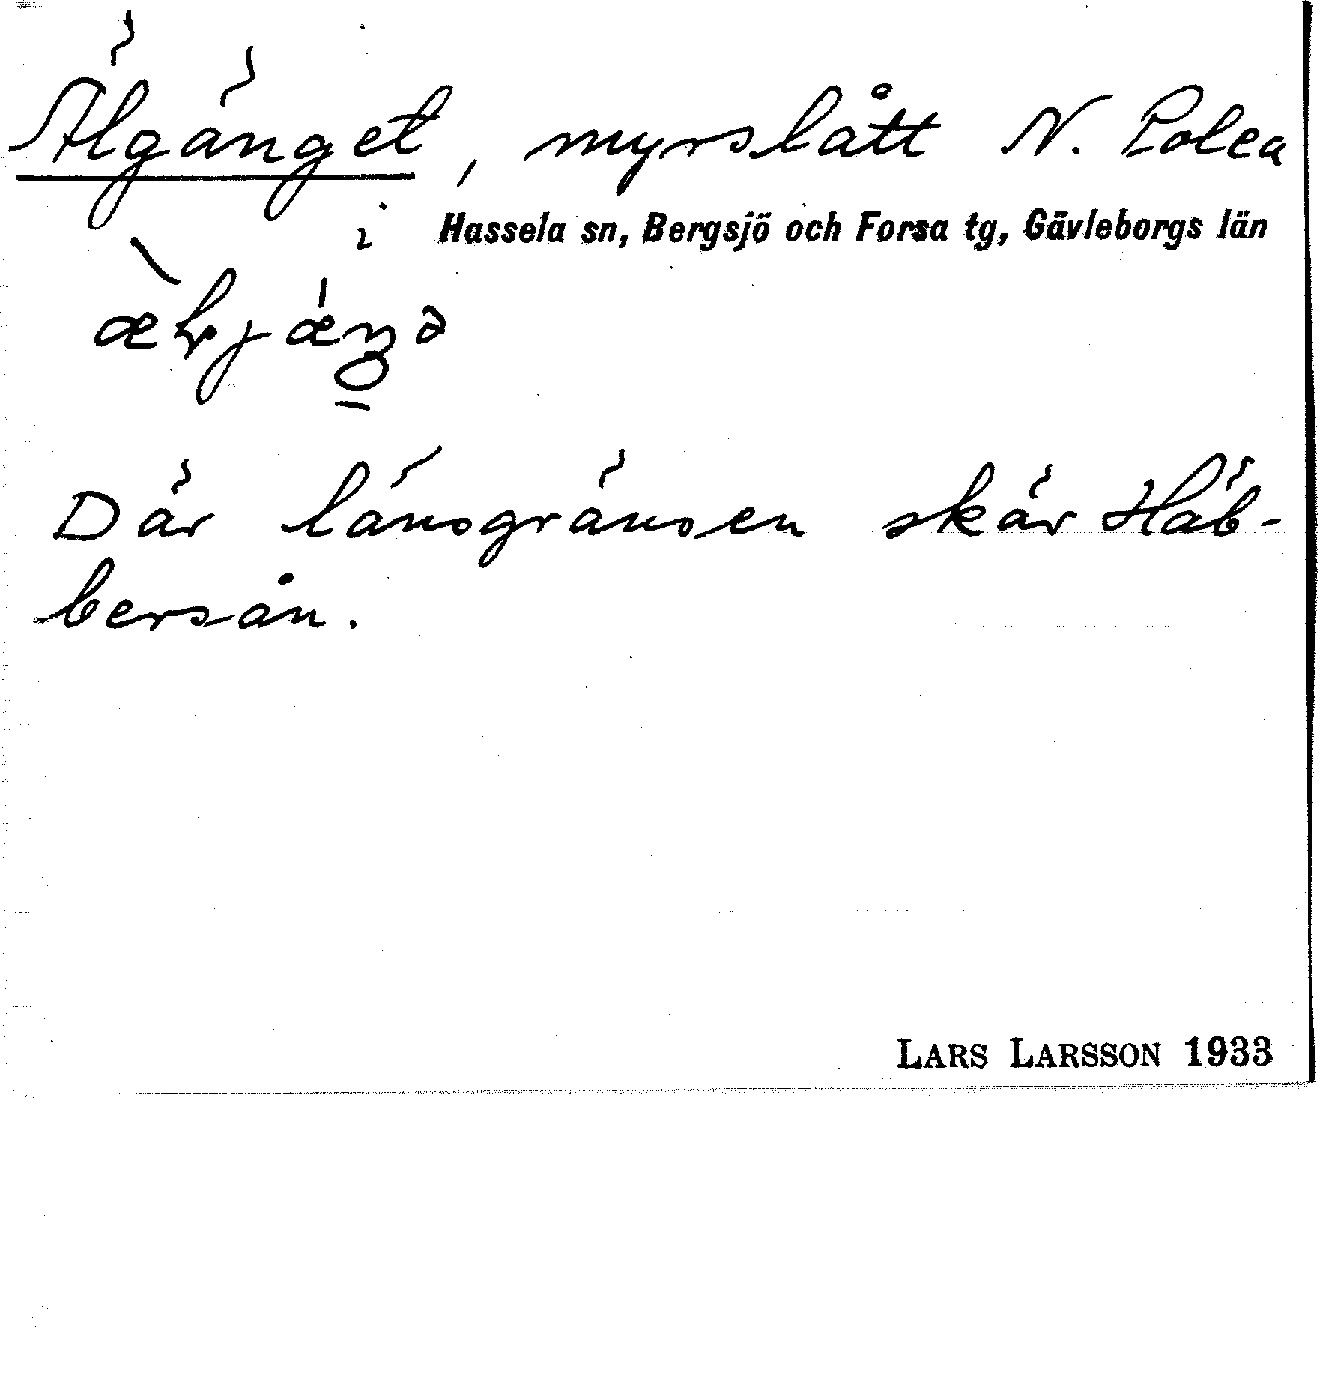 Älgänget, myrslått N. Lolea
i Hassela sn, Bergsjö och Forsa tg, Gävleborgs län
Där länsgränsen skär Häb-
bersån.
LARS LARSSON 1933